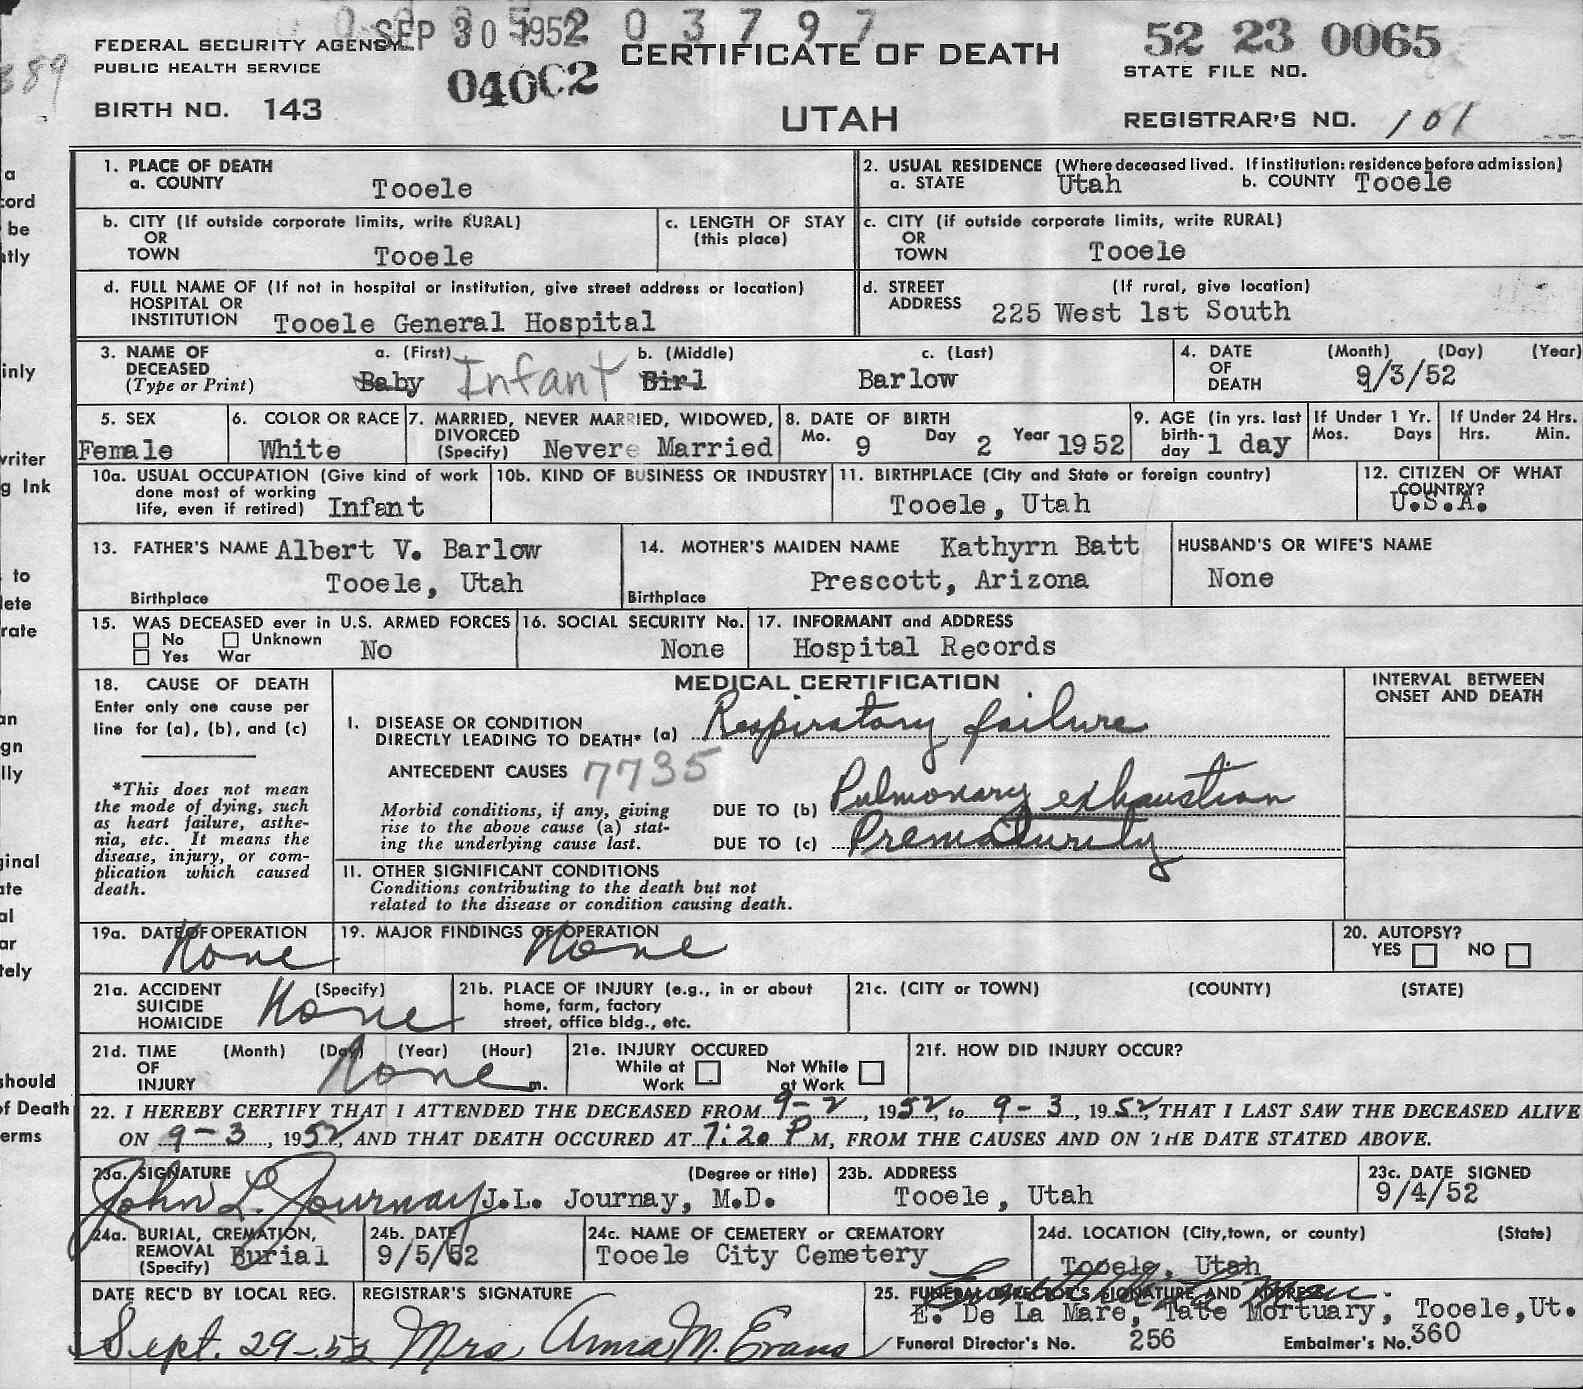 SEP 30 1952 2 0 3 7 9 7
FEDERAL SECURITY AGENCY
PUBLIC HEALTH SERVICE
04002
CERTIFICATE OF DEATH
52 23 0065
STATE FILE NO.
BIRTH NO. 143
UTAH
REGISTRAR'S NO. 101
1. PLACE OF DEATH
a. COUNTY Tooele
2. USUAL RESIDENCE (Where deceased lived. If institution: residence before admission)
a. STATE Utah b. COUNTY Tooele
b. CITY (If outside corporate limits, write RURAL)
OR
TOWN Tooele
c. LENGTH OF STAY
(this place)
c. CITY (if outside corporate limits, write RURAL)
OR
TOWN Tooele
d. FULL NAME OF (If not in hospital or institution, give street address or location)
HOSPITAL OR
INSTITUTION Tooele General Hospital
d. STREET (If rural, give location)
ADDRESS 225 West 1st South
3. NAME OF a. (First) b. (Middle) c. (Last)
DECEASED
(Type or Print) Baby Infant Girl Barlow
4. DATE (Month) (Day) (Year)
OF
DEATH 9/3/52
5. SEX
Female
6. COLOR OR RACE
White
7. MARRIED, NEVER MARRIED, WIDOWED,
DIVORCED
(Specify) Never Married
8. DATE OF BIRTH
Mo. 9 Day 2 Year 1952
9. AGE (in yrs. last
birth-
day 1 day
If Under 1 Yr.
Mos. Days
If Under 24 Hrs.
Hrs. Min.
10a. USUAL OCCUPATION (Give kind of work
done most of working
life, even if retired) Infant
10b. KIND OF BUSINESS OR INDUSTRY
11. BIRTHPLACE (City and State or foreign country)
Tooele, Utah
12. CITIZEN OF WHAT
COUNTRY?
U.S.A.
13. FATHER'S NAME Albert V. Barlow
Birthplace Tooele, Utah
14. MOTHER'S MAIDEN NAME Kathyrn Batt
Birthplace Prescott, Arizona
HUSBAND'S OR WIFE'S NAME
None
15. WAS DECEASED ever in U.S. ARMED FORCES
No Unknown
Yes War No
16. SOCIAL SECURITY No.
None
17. INFORMANT and ADDRESS
Hospital Records
18. CAUSE OF DEATH
Enter only one cause per
line for (a), (b), and (c)
*This does not mean
the mode of dying, such
as heart failure, asthe-
nia, etc. It means the
disease, injury, or com-
plication which caused
death.
MEDICAL CERTIFICATION
I. DISEASE OR CONDITION
DIRECTLY LEADING TO DEATH* (a) Respiratory failure
ANTECEDENT CAUSES 7735
Morbid conditions, if any, giving
rise to the above cause (a) stat-
ing the underlying cause last.
DUE TO (b) Pulmonary exhaustion
DUE TO (c) Prematurity
II. OTHER SIGNIFICANT CONDITIONS
Conditions contributing to the death but not
related to the disease or condition causing death.
INTERVAL BETWEEN
ONSET AND DEATH
19a. DATE OF OPERATION
None
19. MAJOR FINDINGS OF OPERATION
None
20. AUTOPSY?
YES NO
21a. ACCIDENT (Specify)
SUICIDE
HOMICIDE None
21b. PLACE OF INJURY (e.g., in or about
home, farm, factory
street, office bldg., etc.
21c. (CITY or TOWN) (COUNTY) (STATE)
21d. TIME (Month) (Day) (Year) (Hour)
OF
INJURY None m.
21e. INJURY OCCURED
While at Not While
Work at Work
21f. HOW DID INJURY OCCUR?
22. I HEREBY CERTIFY THAT I ATTENDED THE DECEASED FROM 9-2, 1952, to 9-3, 1952, THAT I LAST SAW THE DECEASED ALIVE
ON 9-3, 1952, AND THAT DEATH OCCURED AT 7:20 P M, FROM THE CAUSES AND ON THE DATE STATED ABOVE.
23a. SIGNATURE (Degree or title)
John L. Journay J.L. Journay, M.D.
23b. ADDRESS
Tooele, Utah
23c. DATE SIGNED
9/4/52
24a. BURIAL, CREMATION,
REMOVAL
(Specify) Burial
24b. DATE
9/5/52
24c. NAME OF CEMETERY or CREMATORY
Tooele City Cemetery
24d. LOCATION (City, town, or county) (State)
Tooele, Utah
DATE REC'D BY LOCAL REG.
Sept. 29-52
REGISTRAR'S SIGNATURE
Mrs Anna M. Evans
25. FUNERAL DIRECTOR'S SIGNATURE AND ADDRESS
E. De La Mare, Tate Mortuary, Tooele, Ut.
Funeral Director's No. 256 Embalmer's No. 360